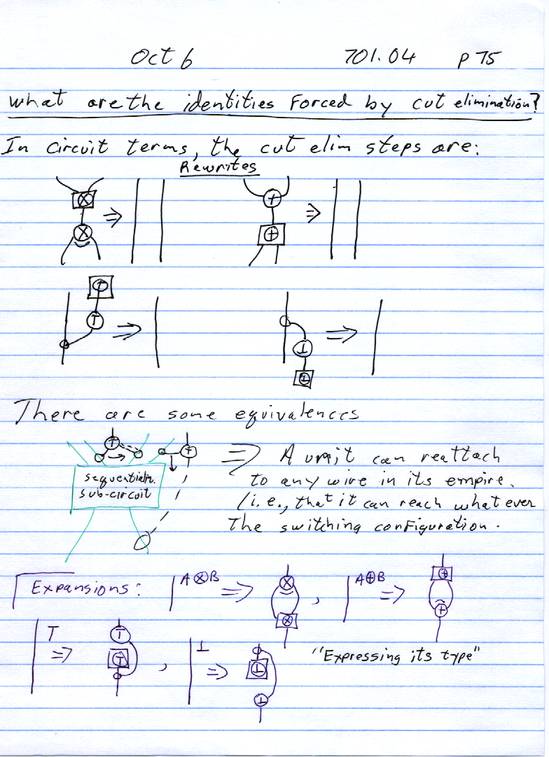 Oct 6 701.04 p 75
what are the identities Forced by cut elimination?
In circuit terms, the cut elim steps are:
Rewrites
⊗ ⇒ + ⇒
⊗ ⊕
T ⇒ ⇒
T ⊥
⊥
There are some equivalences
T T ⇒ A unit can reattach
sequentialz. to any wire in its empire.
sub-circuit (i.e., that it can reach whatever
The switching configuration.
Expansions: A⊗B ⇒ ⊗ , A⊕B ⇒ ⊕
⊗ ⊕
T ⇒ T , ⊥ ⇒ ⊥ "Expressing its type"
T ⊥